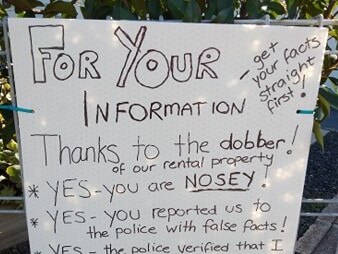 FOR YOUR
- get
your facts
straight
first!
INFORMATION
Thanks to the dobber!
of our rental property
* YES - you are NOSEY!
* YES - you reported us to
the police with false facts!
* YES - the police verified that I